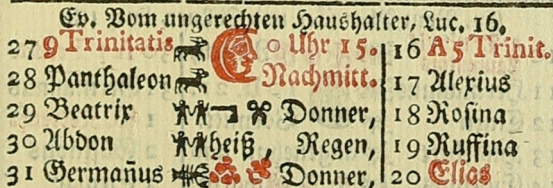 Ev. Vom ungerechten Haushalter, Luc. 16.
27 9 Trinitatis 0 Uhr 15. 16 A 5 Trinit.
28 Panthaleon Nachmitt. 17 Alexius
29 Beatrix Donner, 18 Rosina
30 Abdon heiß, Regen, 19 Ruffina
31 Germañus Donner, 20 Elias